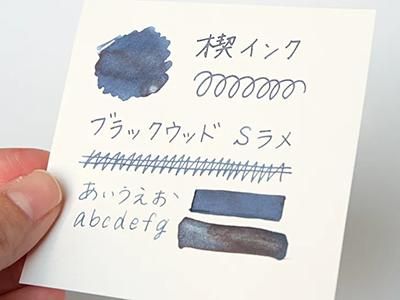 楔インク
ブラックウッド Sラメ
あいうえお
abcdefg